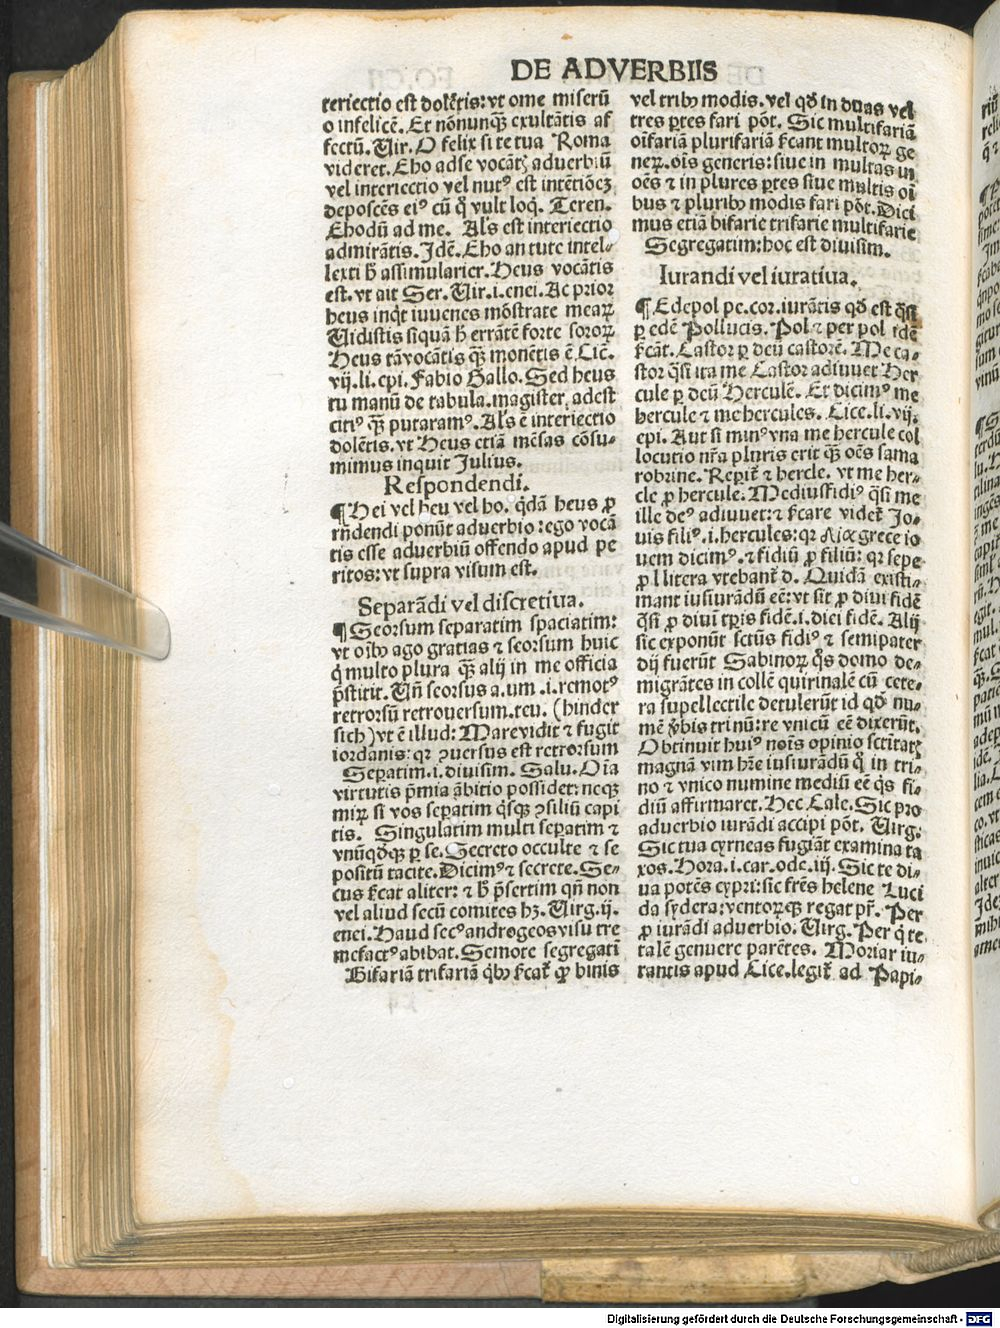 DE ADVERBIIS
teriectio est dolẽtis: vt ome miserũ
o infelicẽ. Et nõnunꝗ̃ exultãtis af
fectũ. Uir. O felix si te tua Roma
videret. Eho adse vocãtꝭ aduerbiũ
vel interiectio vel nutꝰ est intẽtiõeꝫ
deposcẽs eiꝰ cũ ꝙ̃ vult loq̃. Teren.
Ehodũ ad me. Al's est interiectio
admirãtis. Idẽ. Eho an tute intel-
lexti h̃ assimularier. Heus vocãtis
est. vt ait Ser. Uir. i. enei. Ac prior
heus inq̃t iuuenes mõstrate mearꝝ
Uidistis siquã h̃ errãtẽ forte sororꝝ
Heus tã vocãtis ꝗ̃ monẽtis ẽ. Cic̃.
vij. li. epi. Fabio Gallo. Sed heus
tu manũ de tabula. magister adest
citiꝰ ꝗ̃ putaramꝰ. Al's ẽ interiectio
dolẽtis. vt Heus etiã mẽsas cõsu-
mimus inquit Julius.
Respondendi.
¶ Hei vel heu vel ho. q̃dã heus ꝓ
rñdendi ponũt aduerbio: ego vocã
tis esse aduerbiũ offendo apud pe
ritos: vt supra visum est.
Separãdi vel discretiua.
¶ Seorsum separatim spaciatim:
vt oĩbꝰ ago gratias ⁊ seorsum huic
q̃ multo plura ꝗ̃ alij in me officia
p̃stitit. Uñ seorsus a. um .i. remotꝰ
retrorsũ retroversum. teu. (hinder
sich) vt ẽ illud: Mare vidit ⁊ fugit
iordanis: qr ꝯuersus est retrorsum
Sep̱atim .i. diuisim. Salu. Oĩa
virtutis p̃mia ãbitio possidet: neqꝫ
mirꝝ si vos sep̱atim q̃sqꝫ ꝯsiliũ capi
tis. Singulatim multi sep̱atim ⁊
vnũqd̃qꝫ ꝑ se. Secreto occulte ⁊ se
positũ tacite. Dicimꝰ ⁊ secrete. Se-
cus fc̃at aliter: ⁊ h̃ p̃sertim qñ non
vel aliud secũ comites hꝫ. Uirg. ij.
enei. Haud secꝰ androgeos visu tre
mefactꝰ abibat. Semote segregatĩ
Bifariã trifariã q̃bꝰ fc̃at̃ ꝙ binis
vel tribꝰ modis. vel qd̃ in duas vel
tres ꝑtes fari põt. Sic multifariã
oĩfariã plurifariã fc̃ant multorꝝ ge
nerꝝ. oĩs generis: siue in multas in
oẽs ⁊ in plures ꝑtes siue multis oĩ
bus ⁊ pluribꝰ modis fari põt. Dici
mus etiã bifarie trifarie multifarie
Segregatim: hoc est diuisim.
Iurandi vel iuratiua.
¶ Edepol pe. cor. iurãtis qd̃ est q̃si
ꝑ edẽ Pollucis. Pol ⁊ per pol idẽ
fc̃at. Castor ꝑ deũ castorẽ. Me ca-
stor q̃si ita me Castor adiuuet Her
cule ꝑ deũ Herculẽ. Et dicimꝰ me
hercule ⁊ me hercules. Cice. li. vij.
epi. Aut si minꝰ vna me hercule col
locutio nr̃a pluris erit ꝗ̃ oẽs sama
robrine. Reꝑit̃ ⁊ hercle. vt me her-
cle ꝓ hercule. Mediusfidiꝰ q̃si me
ille deꝰ adiuuet: ⁊ fc̃are videt̃ Jo-
uis filiꝰ .i. hercules: qr grece io
uem dicimꝰ. ⁊ fidiũ ꝓ filiũ: qr sepe
ꝓ l litera vtebant̃ d. Quidã existi-
mant iusiurãdũ eẽ: vt sit ꝓ diui fidẽ
q̃si ꝓ diui tꝑis fidẽ .i. diei fidẽ. Alij
sic exponũt sctũs fidiꝰ ⁊ semipater
dij fuerũt Sabinorꝝ q̃s domo de-
migrãtes in collẽ quirinalẽ cũ cete-
ra supellectile detulerũt id qd̃ nu-
mẽ v̾bis trinũ: re vnicũ eẽ dixerũt.
Obtinuit huiꝰ noĩs opinio sctĩtatꝭ
magnã vim hr̃e iusiurãdũ q̃ in tri-
no ⁊ vnico numine mediũ eẽ q̃s fi-
diũ affirmaret. Hec Cale. Sic pro
aduerbio iurãdi accipi põt. Uirg.
Sic tua cyrneas fugiãt examina ta
xos. Hora. i. car. ode. iij. Sic te di-
ua potẽs cypri: sic fr̃es helene Luci
da sydera: ventorꝝqꝫ regat pr̃. Per
ꝓ iurãdi aduerbio. Uirg. Per q̃ te
talẽ genuere parẽtes. Moriar iu-
rantis apud Cice. legit̃ ad Papi-
Digitalisierung gefördert durch die Deutsche Forschungsgemeinschaft - DFG